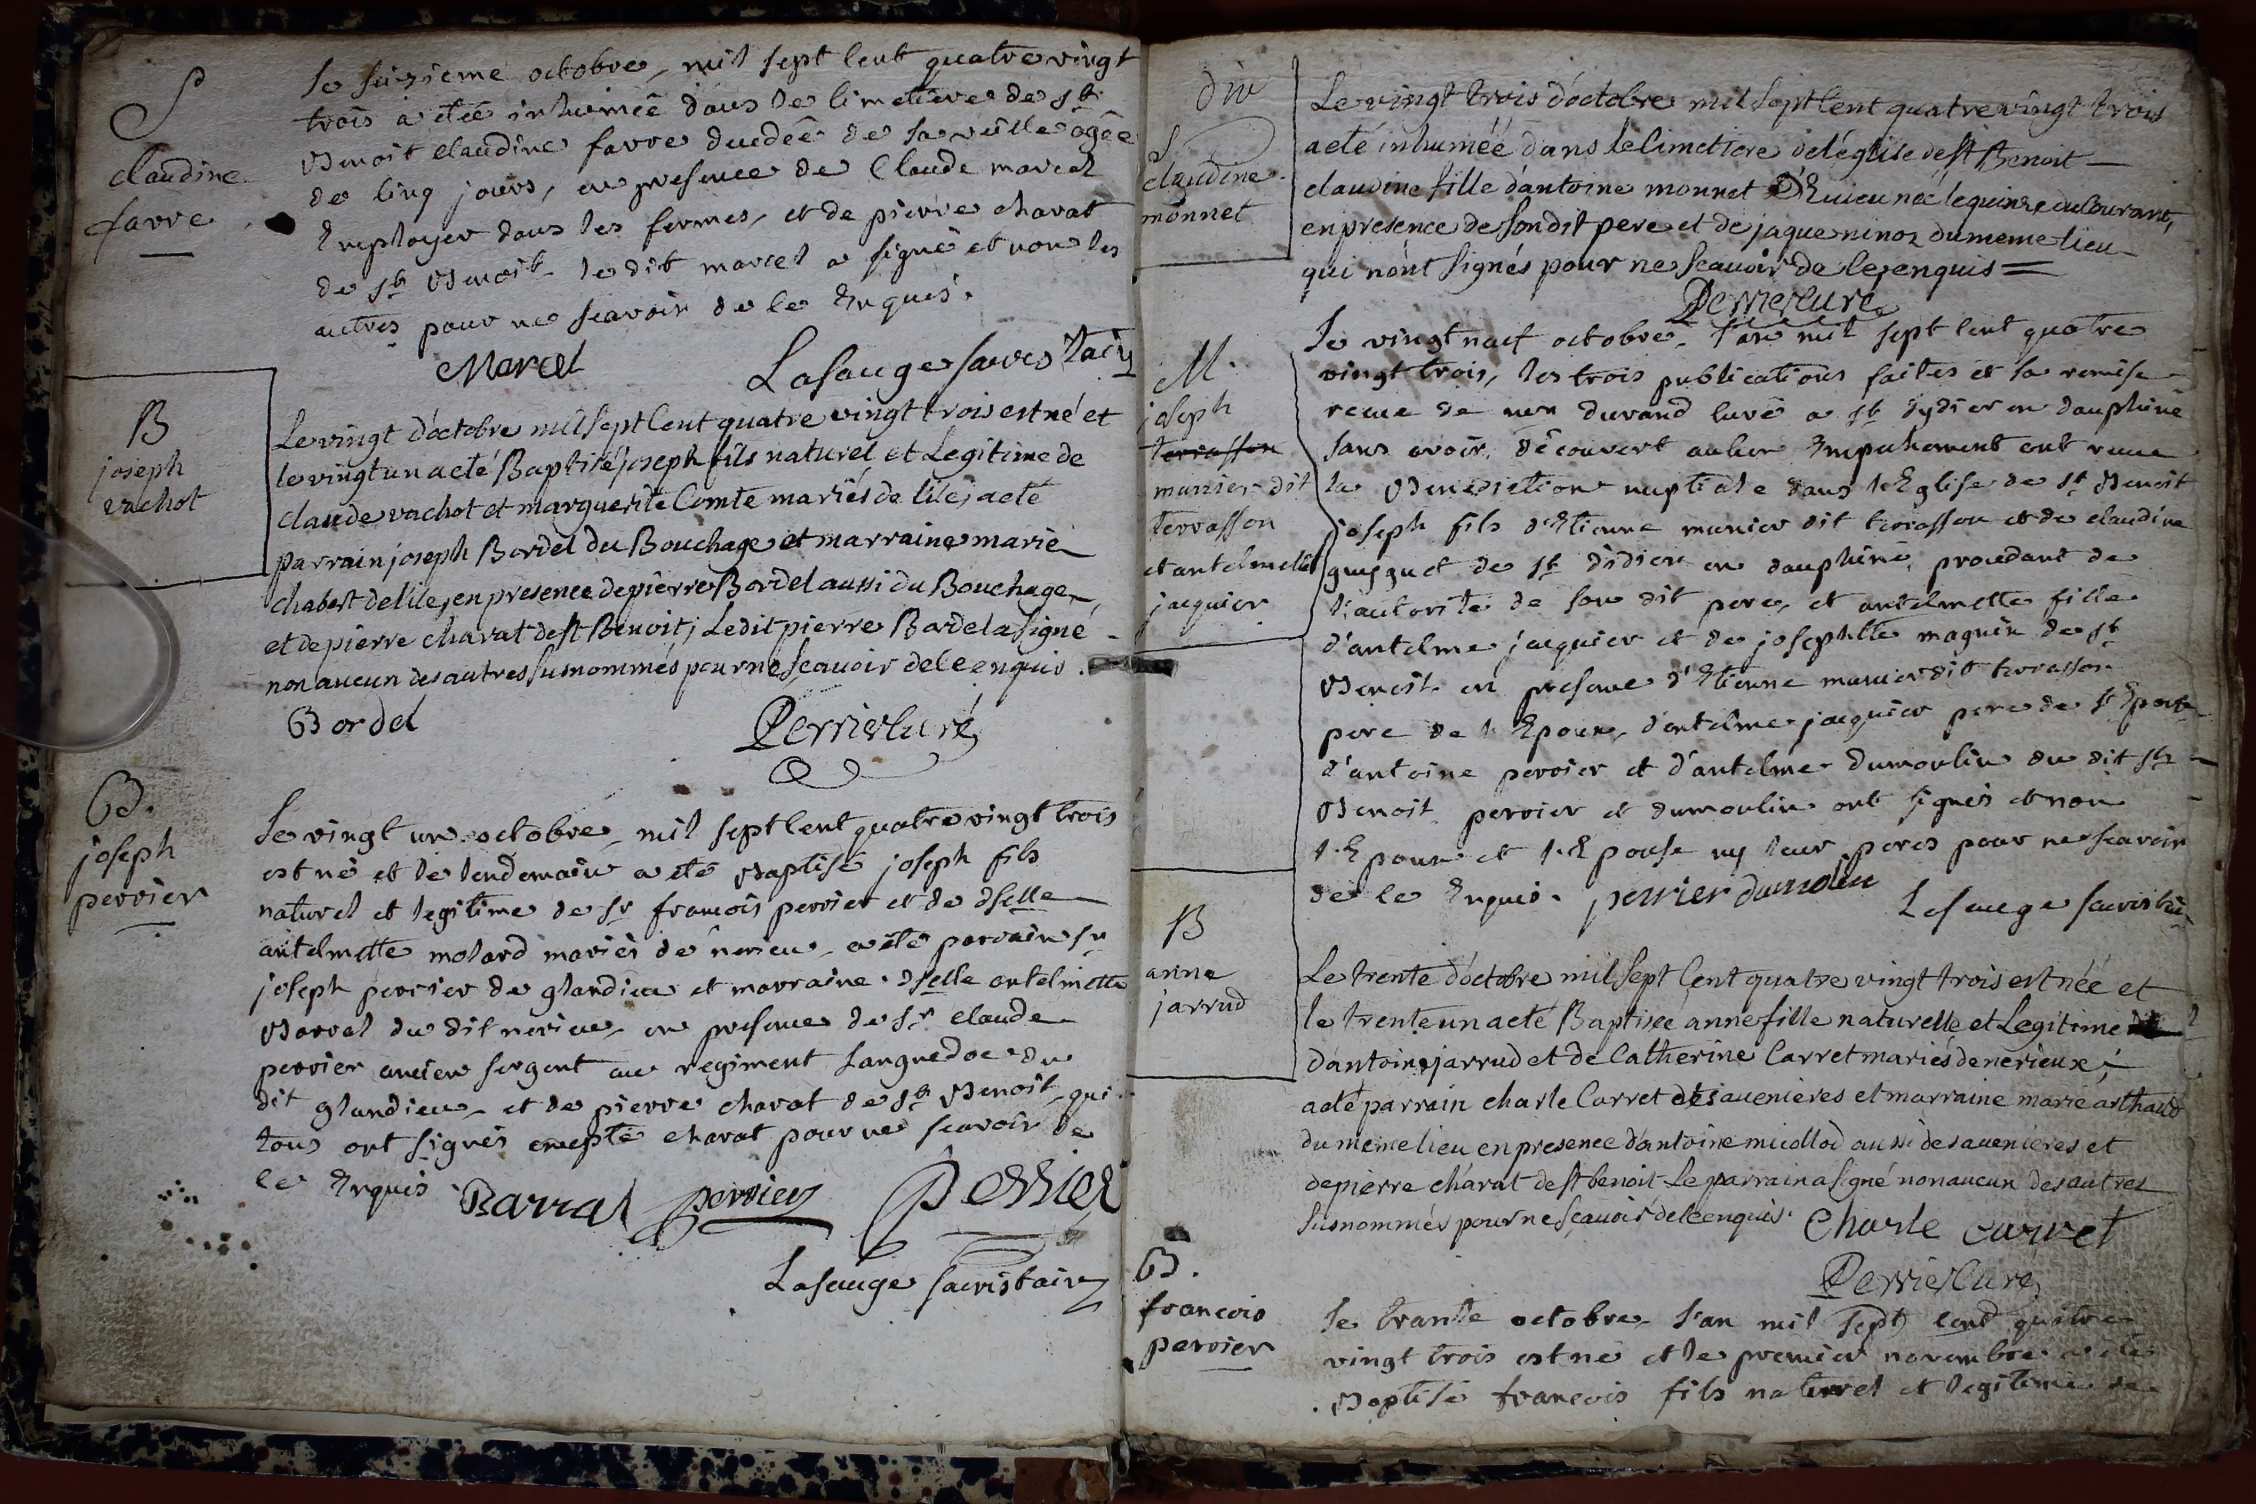 S
claudine
favre
Le seizieme octobre, mil sept cent quatre vingt
trois a été inhumée dans le cimetiere de st
Benoit claudine favre decedée de la veille agée
de cinq jours, en presence de Claude marcel
Employer dans les fermes, et de pierre charat
de st Benoit le dit marcel a signé et non les
autres pour ne scavoir de ce Enquis.
Marcel Lasauge sacristain
B
joseph
vachot
Le vingt d'octobre mil sept cent quatre vingt trois est né et
le vingt un a eté Baptisé joseph fils naturel et Legitime de
claude vachot et marguerite Comte mariés de lile, a eté
parrain joseph Bordel du Bouchage et marraine marie
chabert de lile, en presence de pierre Bordel aussi du Bouchage
et de pierre charat de st Benoit; Ledit pierre Bordel a signé
non aucun des autres susnommés pour ne scavoir de ce enquis.
Bordel Perrier curé
B.
joseph
perrier
Le vingt un octobre, mil sept cent quatre vingt trois
est né et le lendemain a eté Baptisé joseph fils
naturel et legitime de sr francois perrier et de dselle
antelmette molard mariés de nerieu, a eté parrain sr
joseph perrier de glandieu et marraine dselle antelmette
Barral du dit nerieu, en presence de sr claude
perrier ancien sergent au regiment Languedoc du
dit glandieu, et de pierre charat de st Benoit, qui
tous ont signés excepté charat pour ne scavoir de
ce Enquis. Barral perrier Perrier
Lasauge sacristain
div
S
claudine
monnet
Le vingt trois d'octobre mil sept cent quatre vingt trois
a eté inhumée dans le cimetiere de l'église de st Benoit
claudine fille d'antoine monnet D'Euieu née le quinze du Courant,
en presence de son dit pere et de jaque ninoz du meme lieu
qui n'ont signés pour ne scavoir de ce enquis
Perrier curé
M.
joseph
terrasson
munier dit
terrasson
et antelmette
jacquier
Le vingt neuf octobre, l'an mil sept cent quatre
vingt trois, les trois publications faites et la remise
recue de mr durand curé a st dydier en dauphiné
sans avoir découvert aucun Empechement ont recue
la Benediction nuptiale dans l'Eglise de st Benoit
joseph fils d'Etienne munier dit terrasson et de claudine
guiguet de st didier en dauphiné, procedant de
l'autorité de son dit pere, et antelmette fille
d'antelme jacquier et de josephtte magnin de st
Benoit en presence d'Etienne munier dit terrasson
pere de l'Epoux, d'antelme jacquier pere de l'Epouse
d'antoine perrier et d'antelme dumoulin du dit st
Benoit perrier et dumoulin ont signés et non
l'Epoux et l'Epouse ny leur peres pour ne scavoir
de ce Enquis. perrier dumolin Lasauge sacristain
B
anne
jarrud
Le trente d'octobre mil sept cent quatre vingt trois est née et
le trente un a eté Baptisée anne fille naturelle et Legitime
d'antoine jarrud et de Catherine Carret mariés de nerieux;
a eté parrain charle Carret des avenieres et marraine marie arthaud
du meme lieu en presence d'antoine micollod aussi des avenieres et
de pierre charat de st benoit Le parrain a signé non aucun des autres
susnommés pour ne sçavoir de ce enquis. Charle carret
Perrier curé
B.
francois
perrier
Le trante octobre l'an mil sept cent quatre
vingt trois est né et le premier novembre a eté
Baptisé francois fils naturel et legitime de